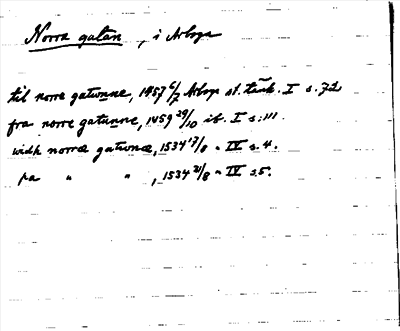 Norra gatan, i Arboga
til norre gatunne, 1457 6/7 Arboga st. tänk. I s. 72
fra norre gatunne, 1459 29/10 ib. I s. 111.
widh norræ gatwnæ, 1534 17/8 " IV s. 4.
pa " " , 1534 31/8 " IV s. 5.